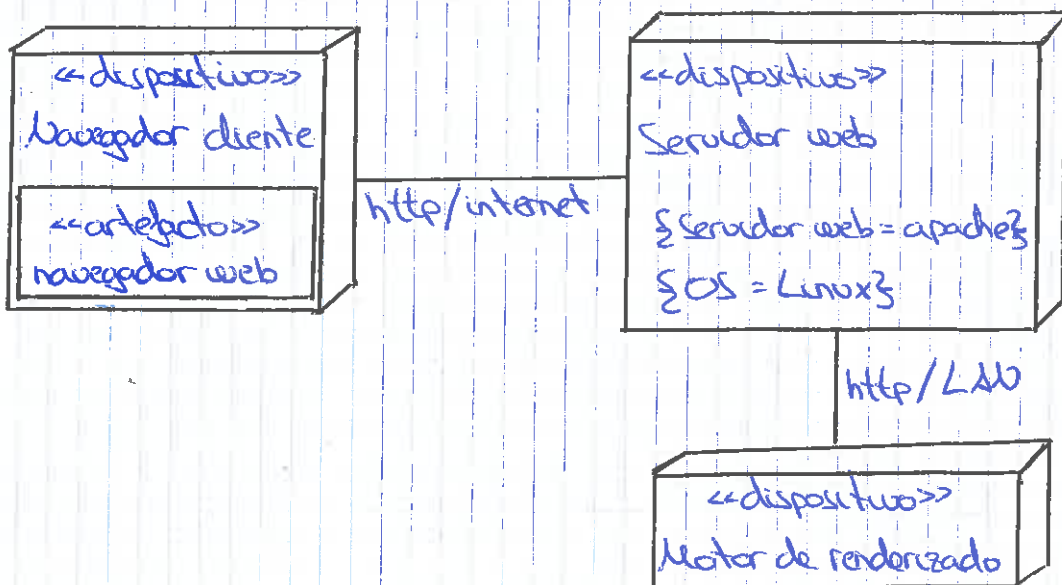 <<dispositivo>>
Navegador cliente
<<artefacto>>
navegador web
http/internet
<<dispositivo>>
Servidor web
{Servidor web = apache}
{OS = Linux}
http/LAN
<<dispositivo>>
Motor de renderizado